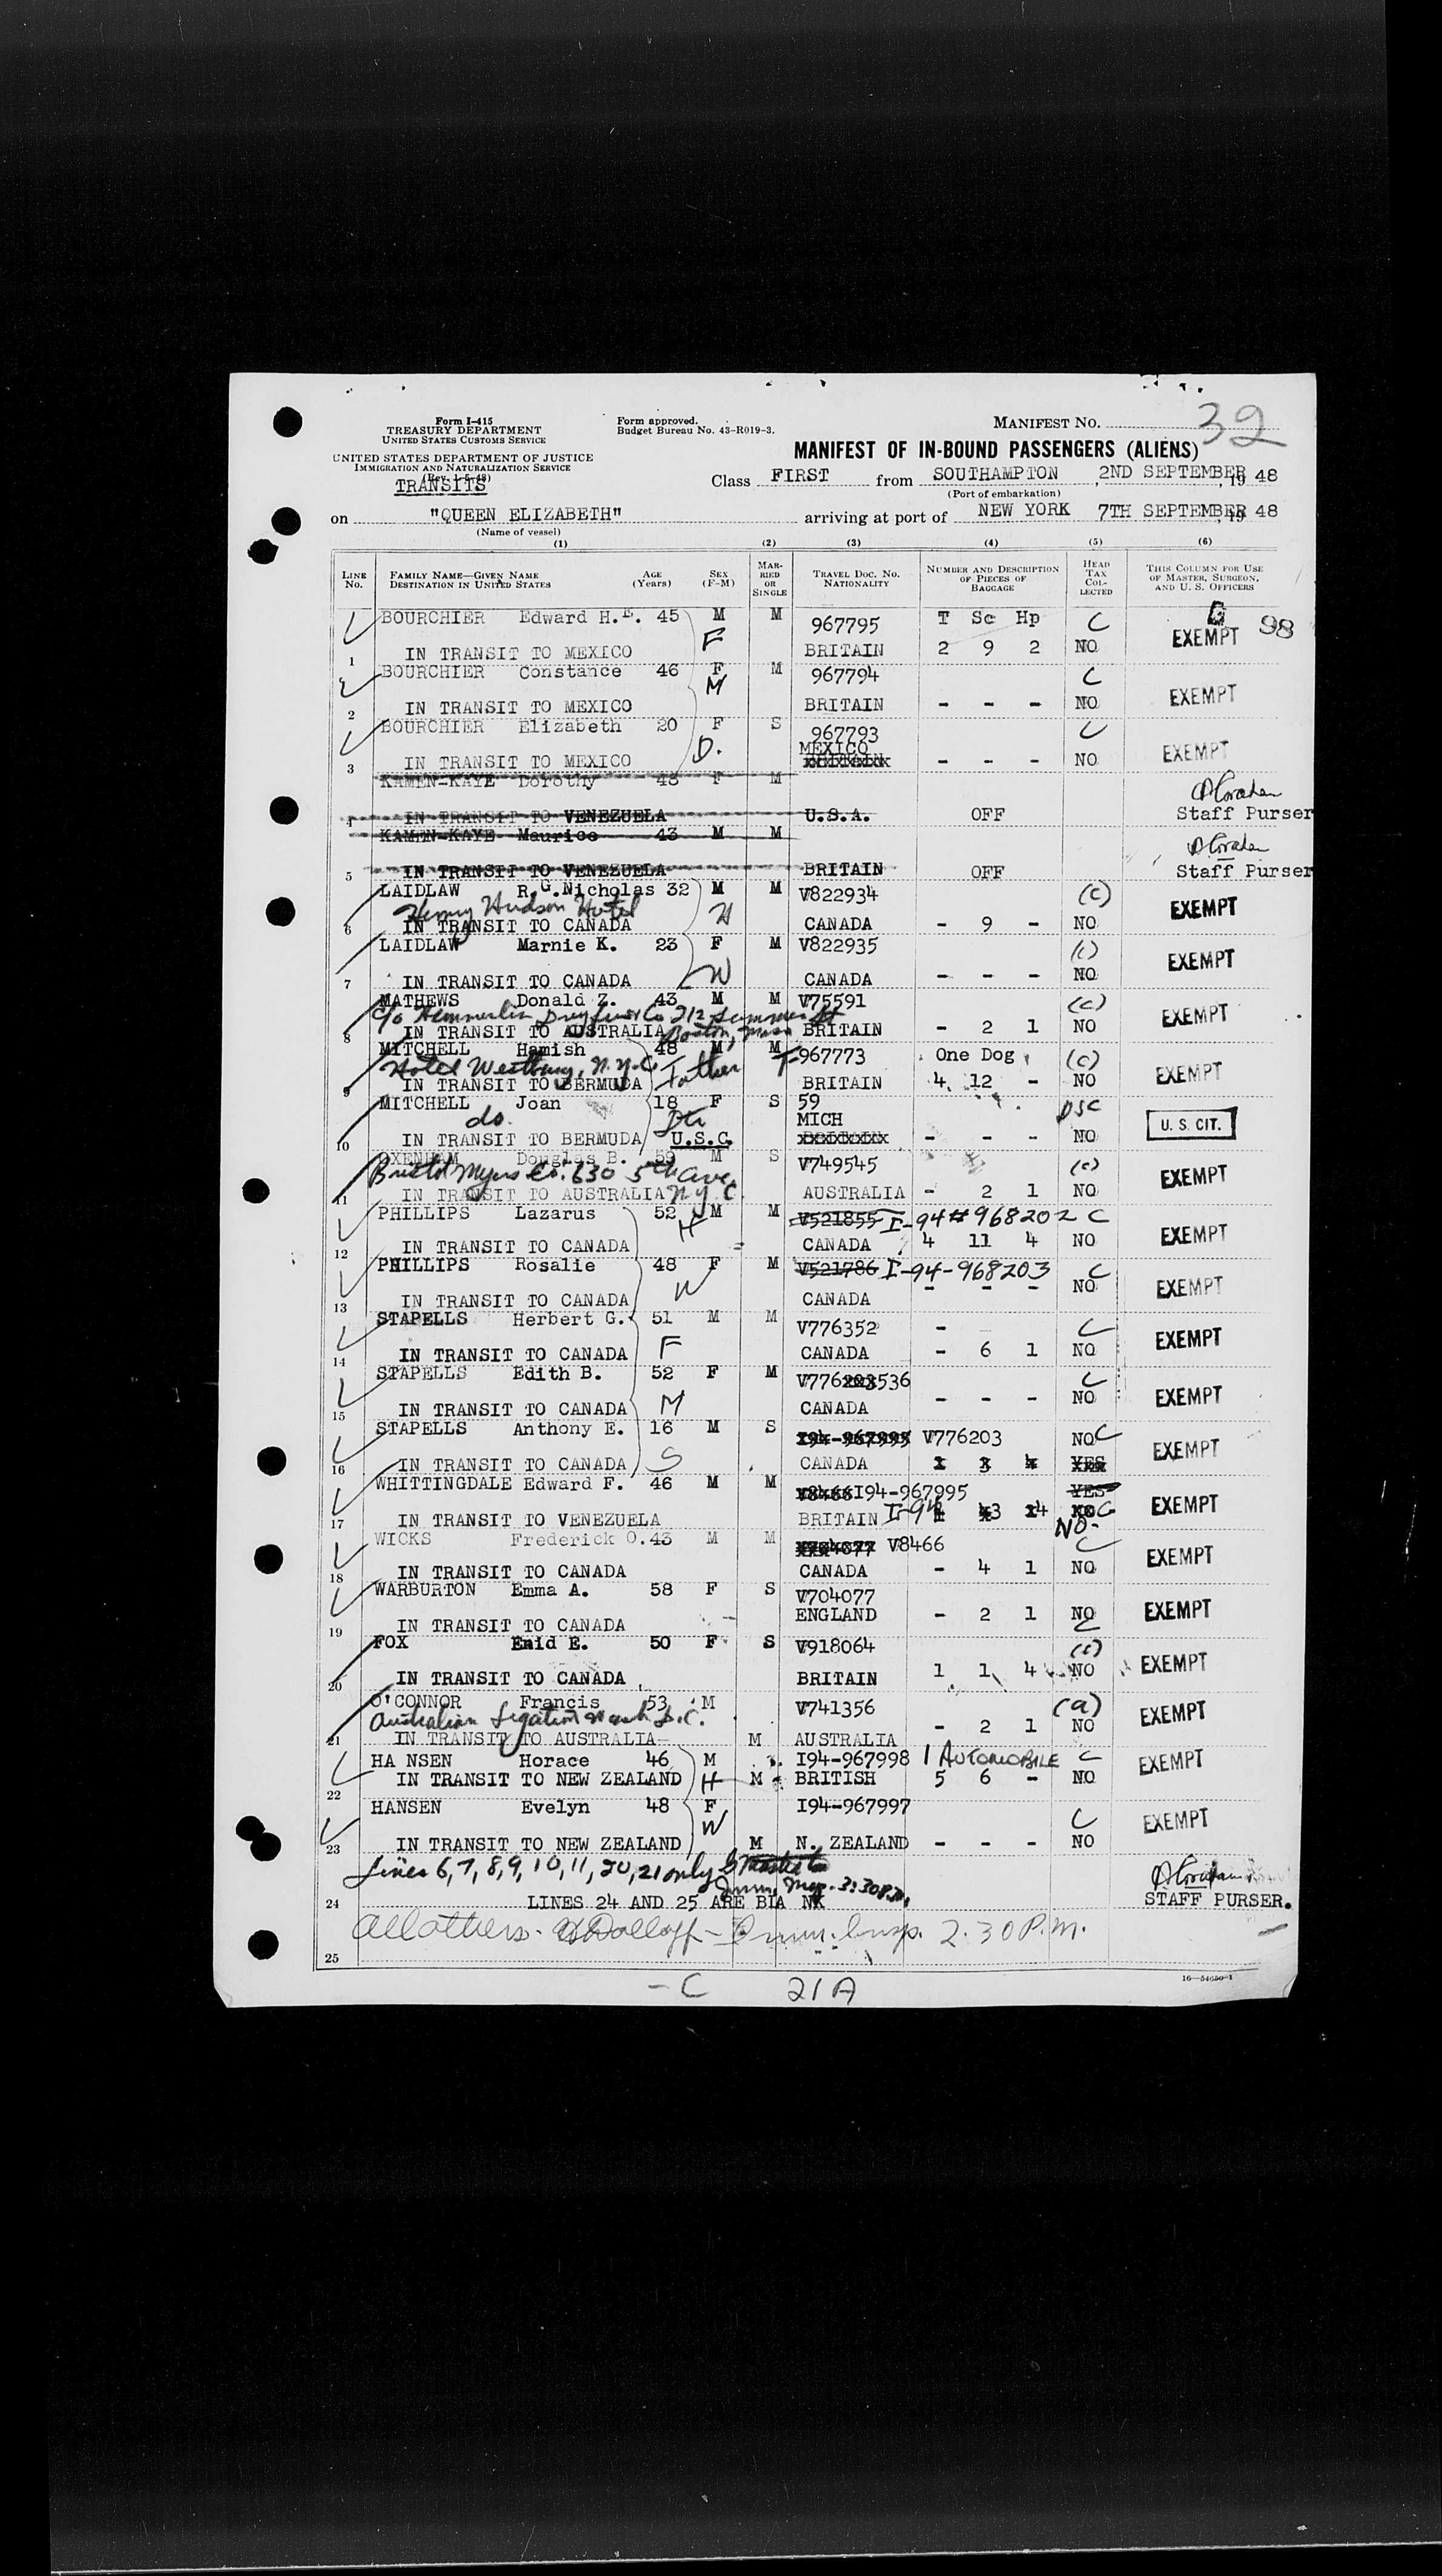 Form I-415
TREASURY DEPARTMENT
UNITED STATES CUSTOMS SERVICE
Form approved.
Budget Bureau No. 43-R019-3.
MANIFEST NO. 32
UNITED STATES DEPARTMENT OF JUSTICE
IMMIGRATION AND NATURALIZATION SERVICE
TRANSITS
MANIFEST OF IN-BOUND PASSENGERS (ALIENS)
Class FIRST from SOUTHAMPTON, 2ND SEPTEMBER, 19 48
(Port of embarkation)
on "QUEEN ELIZABETH" arriving at port of NEW YORK 7TH SEPTEMBER, 19 48
(Name of vessel)
(1) (2) (3) (4) (5) (6)
LINE No. FAMILY NAME—GIVEN NAME DESTINATION IN UNITED STATES AGE (Years) SEX (F-M) MARRIED OR SINGLE TRAVEL DOC. NO. NATIONALITY NUMBER AND DESCRIPTION OF PIECES OF BAGGAGE HEAD TAX COLLECTED THIS COLUMN FOR USE OF MASTER, SURGEON, AND U. S. OFFICERS
BOURCHIER Edward H.E. 45 M M 967795 T Sc Hp C 98
1 IN TRANSIT TO MEXICO F BRITAIN 2 9 2 NO EXEMPT
BOURCHIER Constance 46 F M 967794 C
2 IN TRANSIT TO MEXICO M BRITAIN - - - NO EXEMPT
BOURCHIER Elizabeth 20 F S 967793 C
3 IN TRANSIT TO MEXICO D. MEXICO - - - NO EXEMPT
KAMEN-KAYE Dorothy 48 F M
4 IN TRANSIT TO VENEZUELA U.S.A. OFF Staff Purser
KAMEN-KAYE Maurice 43 M M
5 IN TRANSIT TO VENEZUELA BRITAIN OFF Staff Purser
LAIDLAW R.G.Nicholas 32 M M V822934 (C)
Henry Hudson Hotel H
6 IN TRANSIT TO CANADA CANADA - 9 - NO EXEMPT
LAIDLAW Marnie K. 23 F M V822935 (C)
7 IN TRANSIT TO CANADA W CANADA - - - NO EXEMPT
MATHEWS Donald Z. 43 M M V75591 (C)
8 IN TRANSIT TO AUSTRALIA Boston, Mass BRITAIN - 2 1 NO EXEMPT
MITCHELL Hamish 48 M M 967773 One Dog (C)
Hotel Westbury, N.Y.C. Father
9 IN TRANSIT TO BERMUDA BRITAIN 4 12 - NO EXEMPT
MITCHELL Joan 18 F S 59
do. MICH U. S. CIT.
10 IN TRANSIT TO BERMUDA U.S.C. - - - NO
OXENHAM Douglas B. 59 M S V749545 (C)
Bristol Myers Co. 630 5th Ave
11 IN TRANSIT TO AUSTRALIA N.Y.C. AUSTRALIA - 2 1 NO EXEMPT
PHILLIPS Lazarus 52 M M V521855 I-94#968202 C
12 IN TRANSIT TO CANADA H CANADA 4 11 4 NO EXEMPT
PHILLIPS Rosalie 48 F M V521786 I-94-968203 C
13 IN TRANSIT TO CANADA W CANADA - - - NO EXEMPT
STAPELLS Herbert G. 51 M M V776352 - C
14 IN TRANSIT TO CANADA F CANADA - 6 1 NO EXEMPT
STAPELLS Edith B. 52 F M V776203536 C
15 IN TRANSIT TO CANADA M CANADA - - - NO EXEMPT
STAPELLS Anthony E. 16 M S I94-967995 V776203 NO C
16 IN TRANSIT TO CANADA S CANADA YES EXEMPT
WHITTINGDALE Edward F. 46 M M V8466 I94-967995 YES
17 IN TRANSIT TO VENEZUELA BRITAIN I-94 NO C NO. EXEMPT
WICKS Frederick O. 43 M M V8466 C
18 IN TRANSIT TO CANADA CANADA - 4 1 NO EXEMPT
WARBURTON Emma A. 58 F S V704077
ENGLAND - 2 1 NO EXEMPT
19 IN TRANSIT TO CANADA C
FOX Enid E. 50 F S V918064 (C)
20 IN TRANSIT TO CANADA BRITAIN 1 1 4 NO EXEMPT
O'CONNOR Francis 53 M V741356 (a)
Australian Legation Wash D.C. - 2 1 NO EXEMPT
21 IN TRANSIT TO AUSTRALIA M AUSTRALIA
HANSEN Horace 46 M I94-967998 1 AUTOMOBILE C
22 IN TRANSIT TO NEW ZEALAND H M BRITISH 5 6 - NO EXEMPT
HANSEN Evelyn 48 F I94-967997 C
23 IN TRANSIT TO NEW ZEALAND W M N. ZEALAND - - - NO EXEMPT
Lines 6,7,8,9,10,11,20,21 only
24 LINES 24 AND 25 ARE BLANK STAFF PURSER.
All others - Imm. Insp. 2.30 P.M.
25
- C 21A
16—54650-1